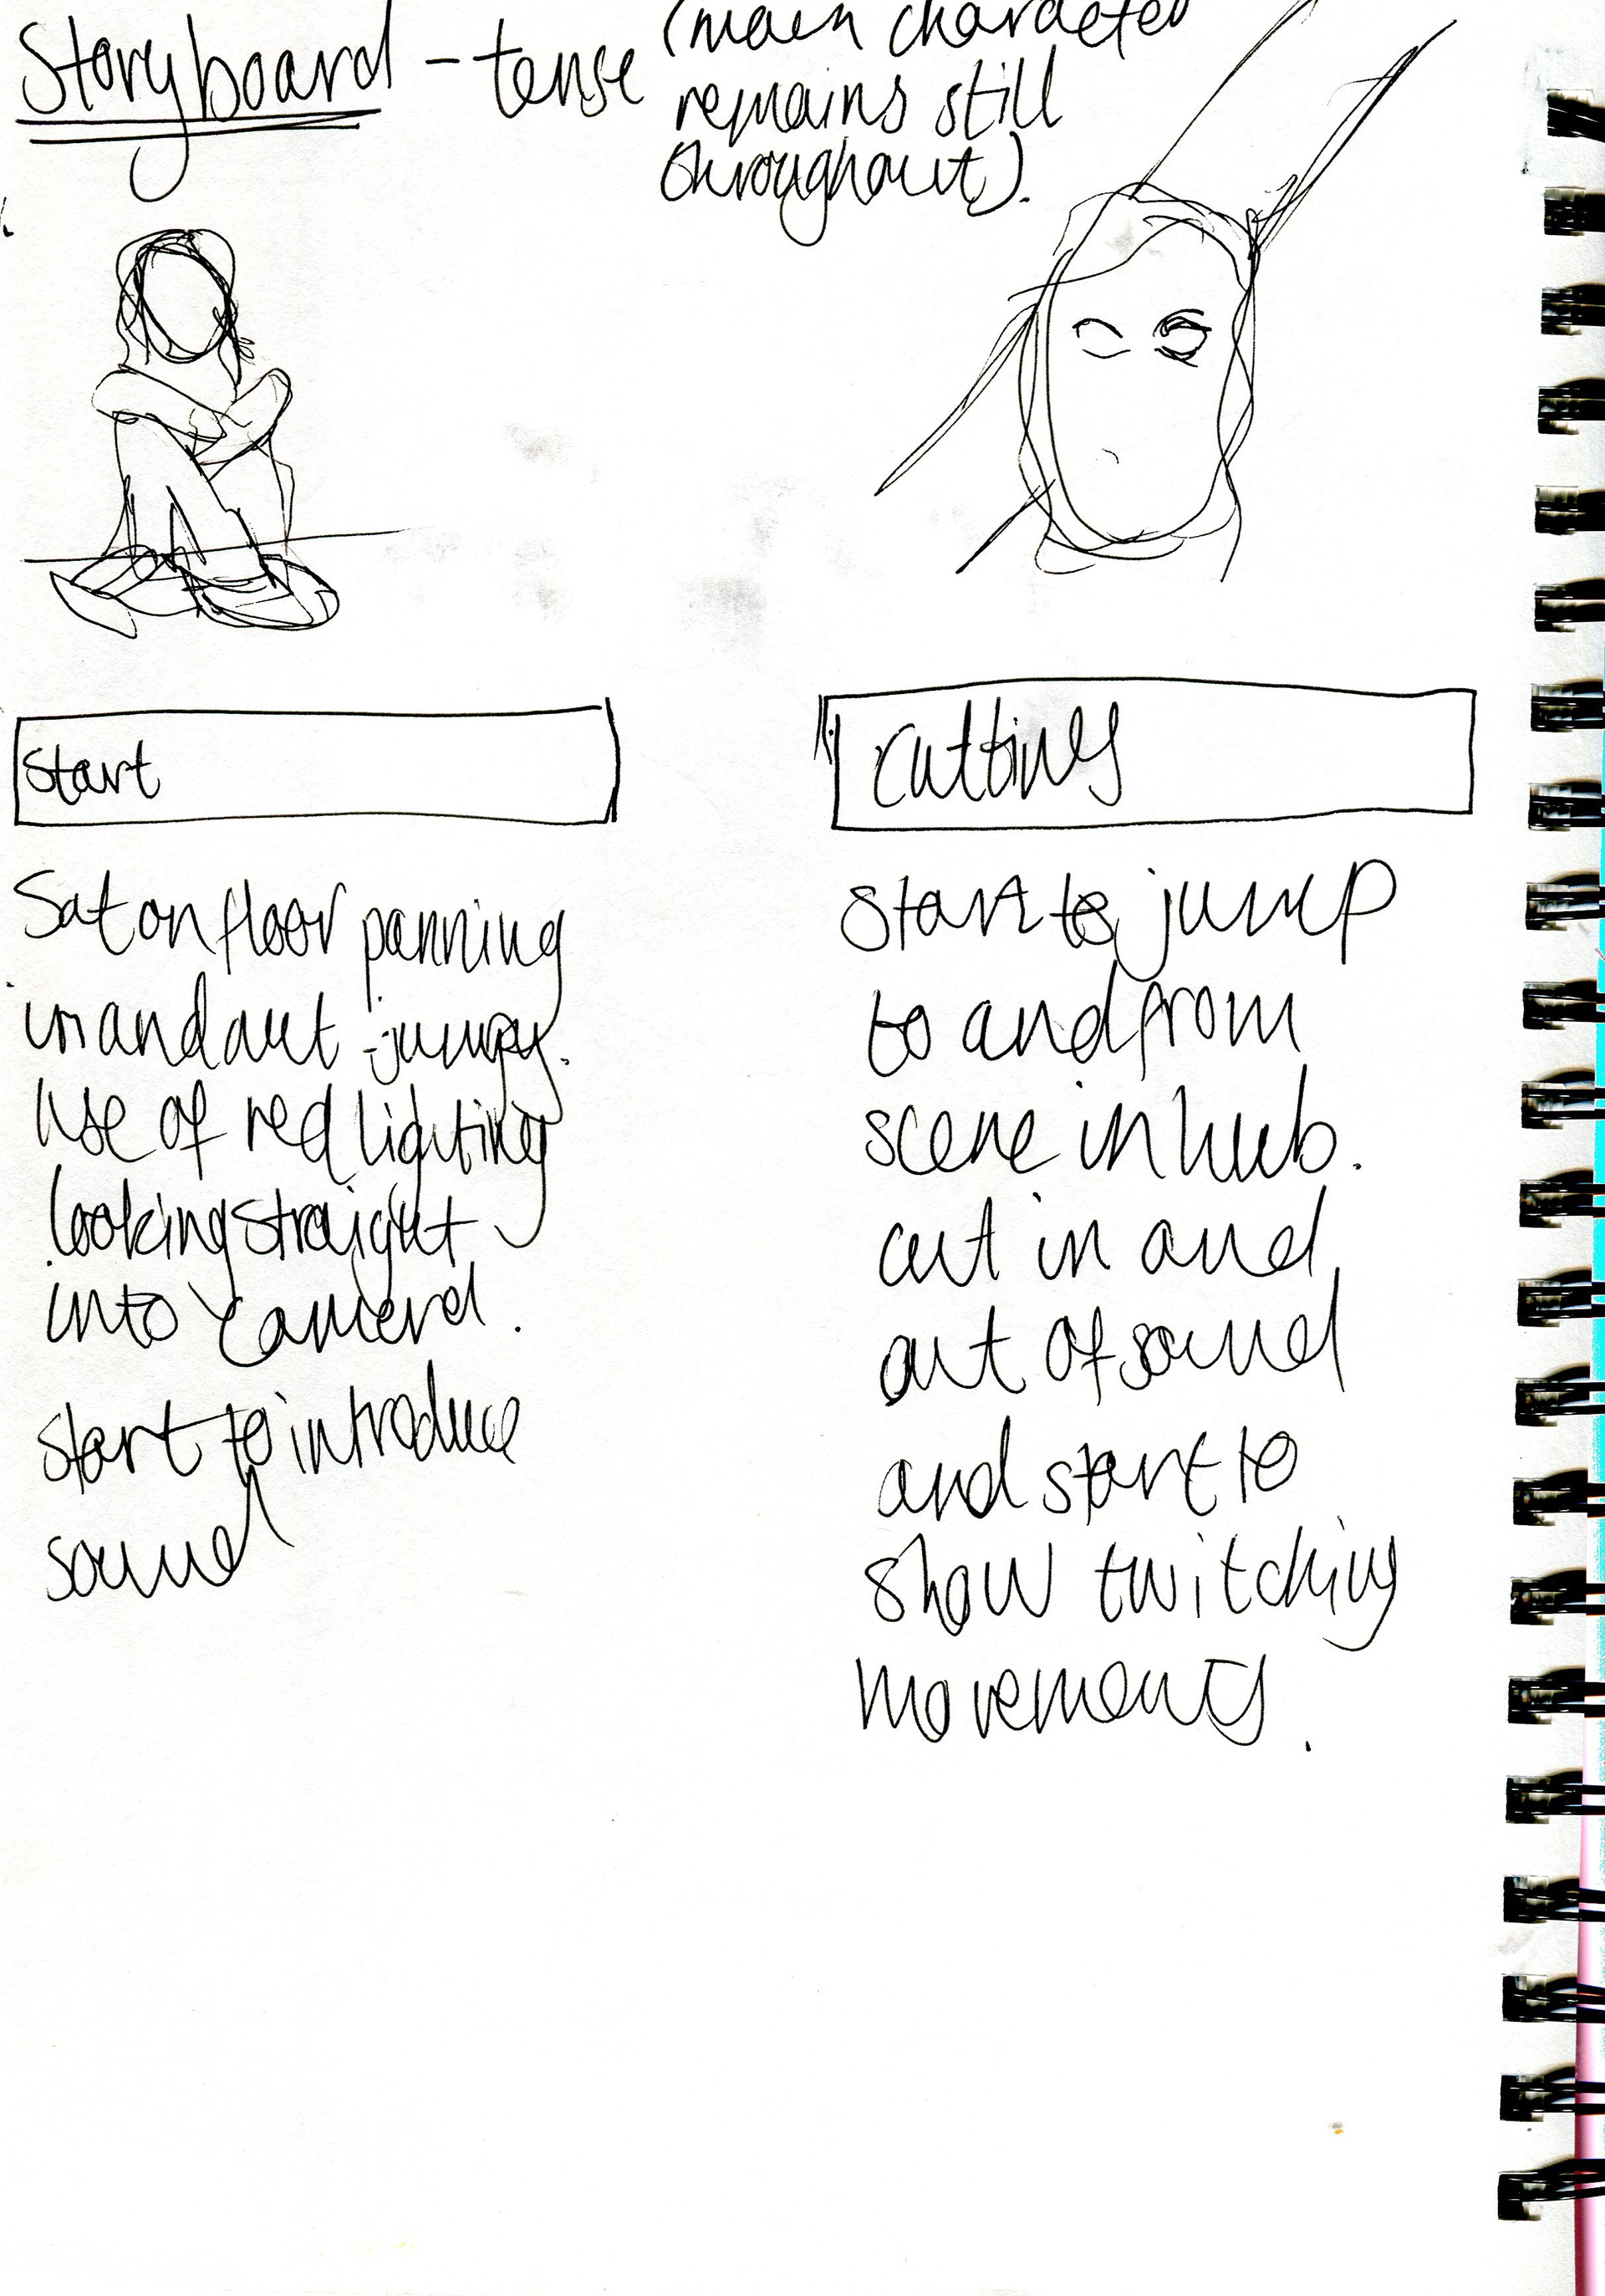 Storyboard - tense (main character
remains still
throughout).
Start
Sat on floor panning
in and out - jumpy.
Use of red lighting
looking straight
into camera.
start to introduce
sound
Cutting
Start to jump
to and from
scene in hub.
cut in and
out of sound
and start to
show twitching
movements.